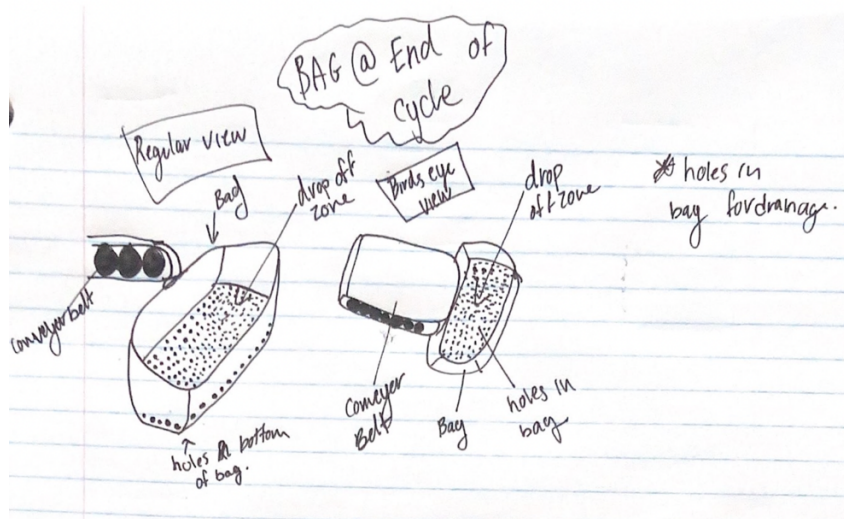 BAG @ End of
cycle
Regular view
Bag
drop off
zone
conveyer belt
holes @ bottom
of bag.
Birds eye
view
drop
off zone
conveyer
Belt
Bag
holes in
bag
* holes in
bag for dranage.